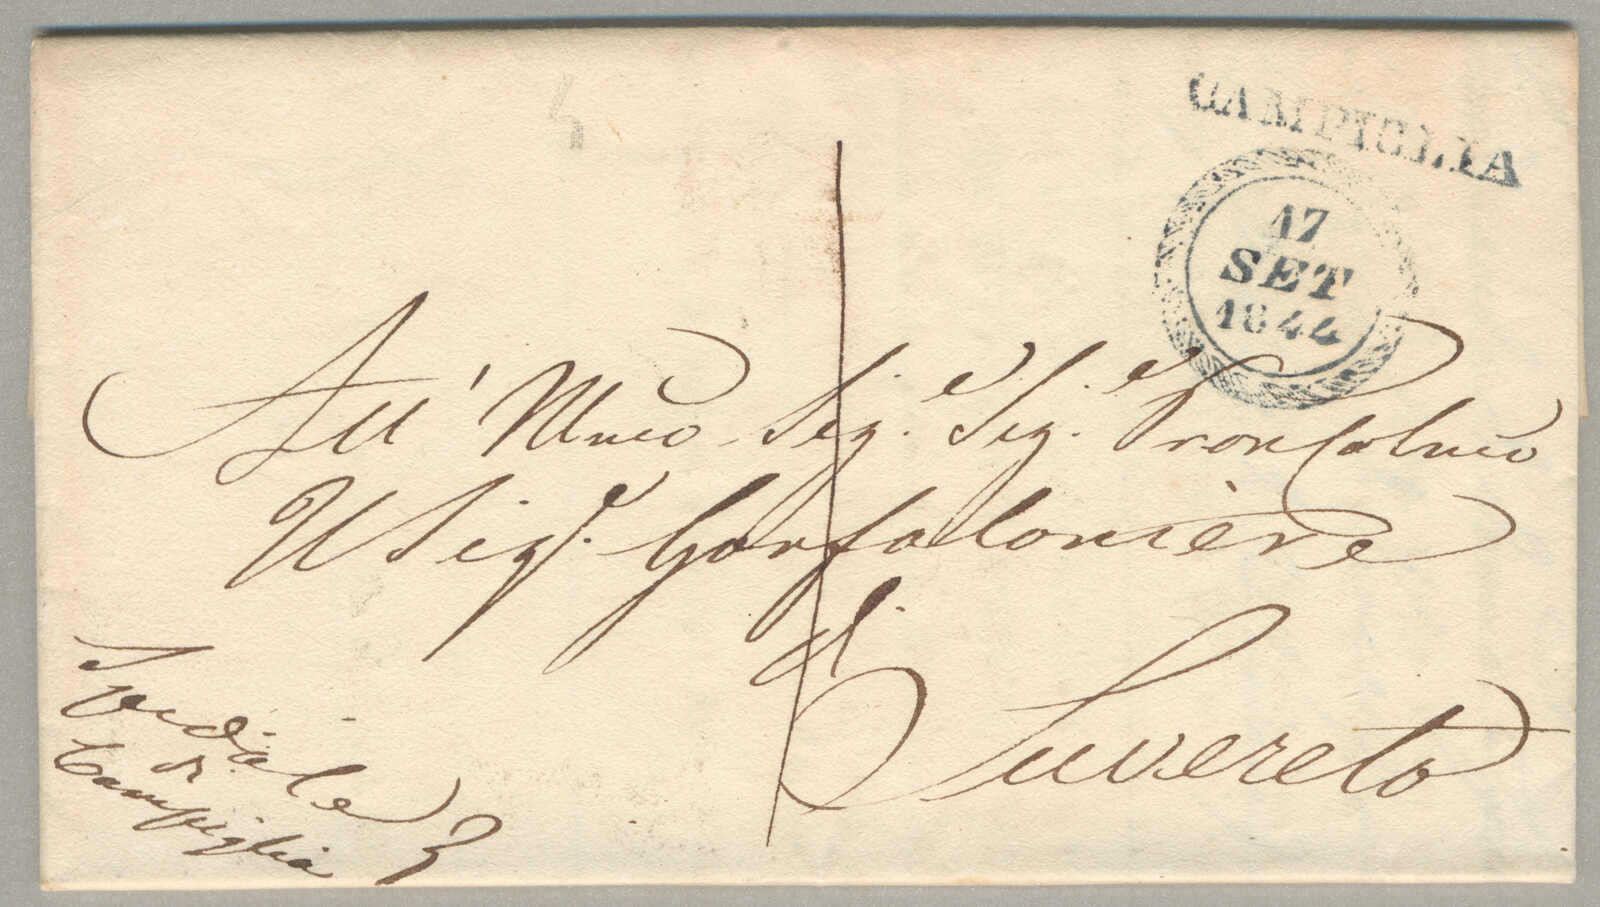 CAMPIGLIA
17
SET
1844
All' Illmo Sig.e Sig.e Pron Colmo
Il Sig.e Gonfaloniere
di
Suvereto
Spedale
di
Campiglia